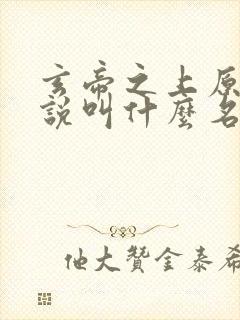 玄帝之上原
說叫什麼名
他大贊金泰希